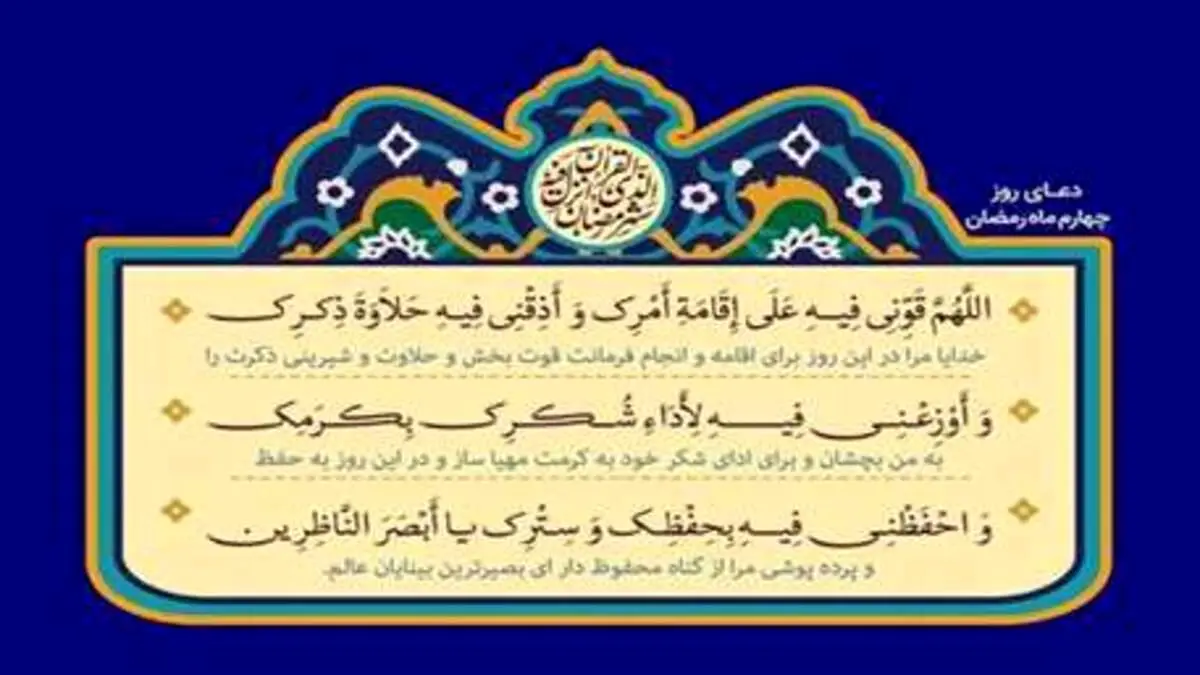 شهر رمضان الذی انزل فیه القرآن
دعای روز
چهارم ماه رمضان
اللَّهُمَّ قَوِّنِی فِیهِ عَلَی إِقَامَةِ أَمْرِکَ وَ أَذِقْنِی فِیهِ حَلاَوَةَ ذِکْرِکَ
خدایا مرا در این روز برای اقامه و انجام فرمانت قوت بخش و حلاوت و شیرینی ذکرت را
وَ أَوْزِعْنِی فِیهِ لِأَدَاءِ شُکْرِکَ بِکَرَمِکَ
به من بچشان و برای ادای شکر خود به کرمت مهیا ساز و در این روز به حفظ
وَ احْفَظْنِی فِیهِ بِحِفْظِکَ وَ سِتْرِکَ یا أَبْصَرَ النَّاظِرِین.
و پرده پوشی مرا از گناه محفوظ دار ای بصیرترین بینایان عالم.